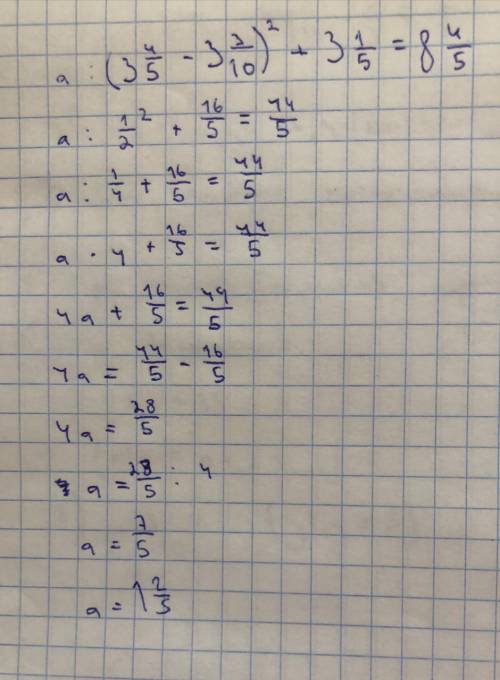 a : (3 4/5 - 3 3/10)² + 3 1/5 = 8 4/5
a : 1/2² + 16/5 = 44/5
a : 1/4 + 16/5 = 44/5
a · 4 + 16/5 = 44/5
4a + 16/5 = 44/5
4a = 44/5 - 16/5
4a = 28/5
a = 28/5 : 4
a = 7/5
a = 1 2/5